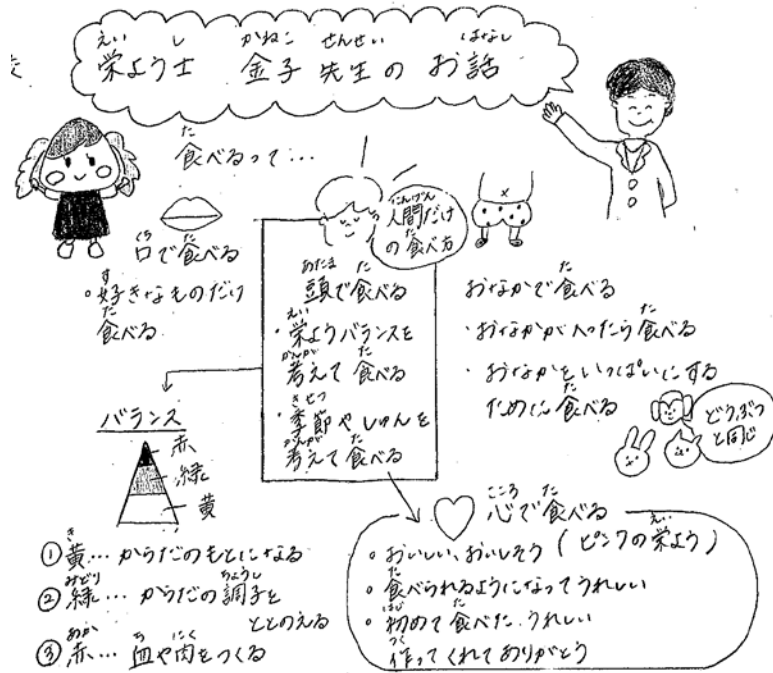 栄よう士 金子先生のお話
食べるって…
口で食べる
・好きなものだけ
食べる
人間だけ
の食べ方
頭で食べる
・栄ようバランスを
考えて食べる
・季節やしゅんを
考えて食べる
おなかで食べる
・おなかがへったら食べる
・おなかをいっぱいにする
ために食べる
どうぶつ
と同じ
バランス
赤
緑
黄
①黄…からだのもとになる
②緑…からだの調子を
ととのえる
③赤…血や肉をつくる
心で食べる
(ピンクの栄よう)
・おいしい、おいしそう
・食べられるようになってうれしい
・初めて食べた、うれしい
作ってくれてありがとう